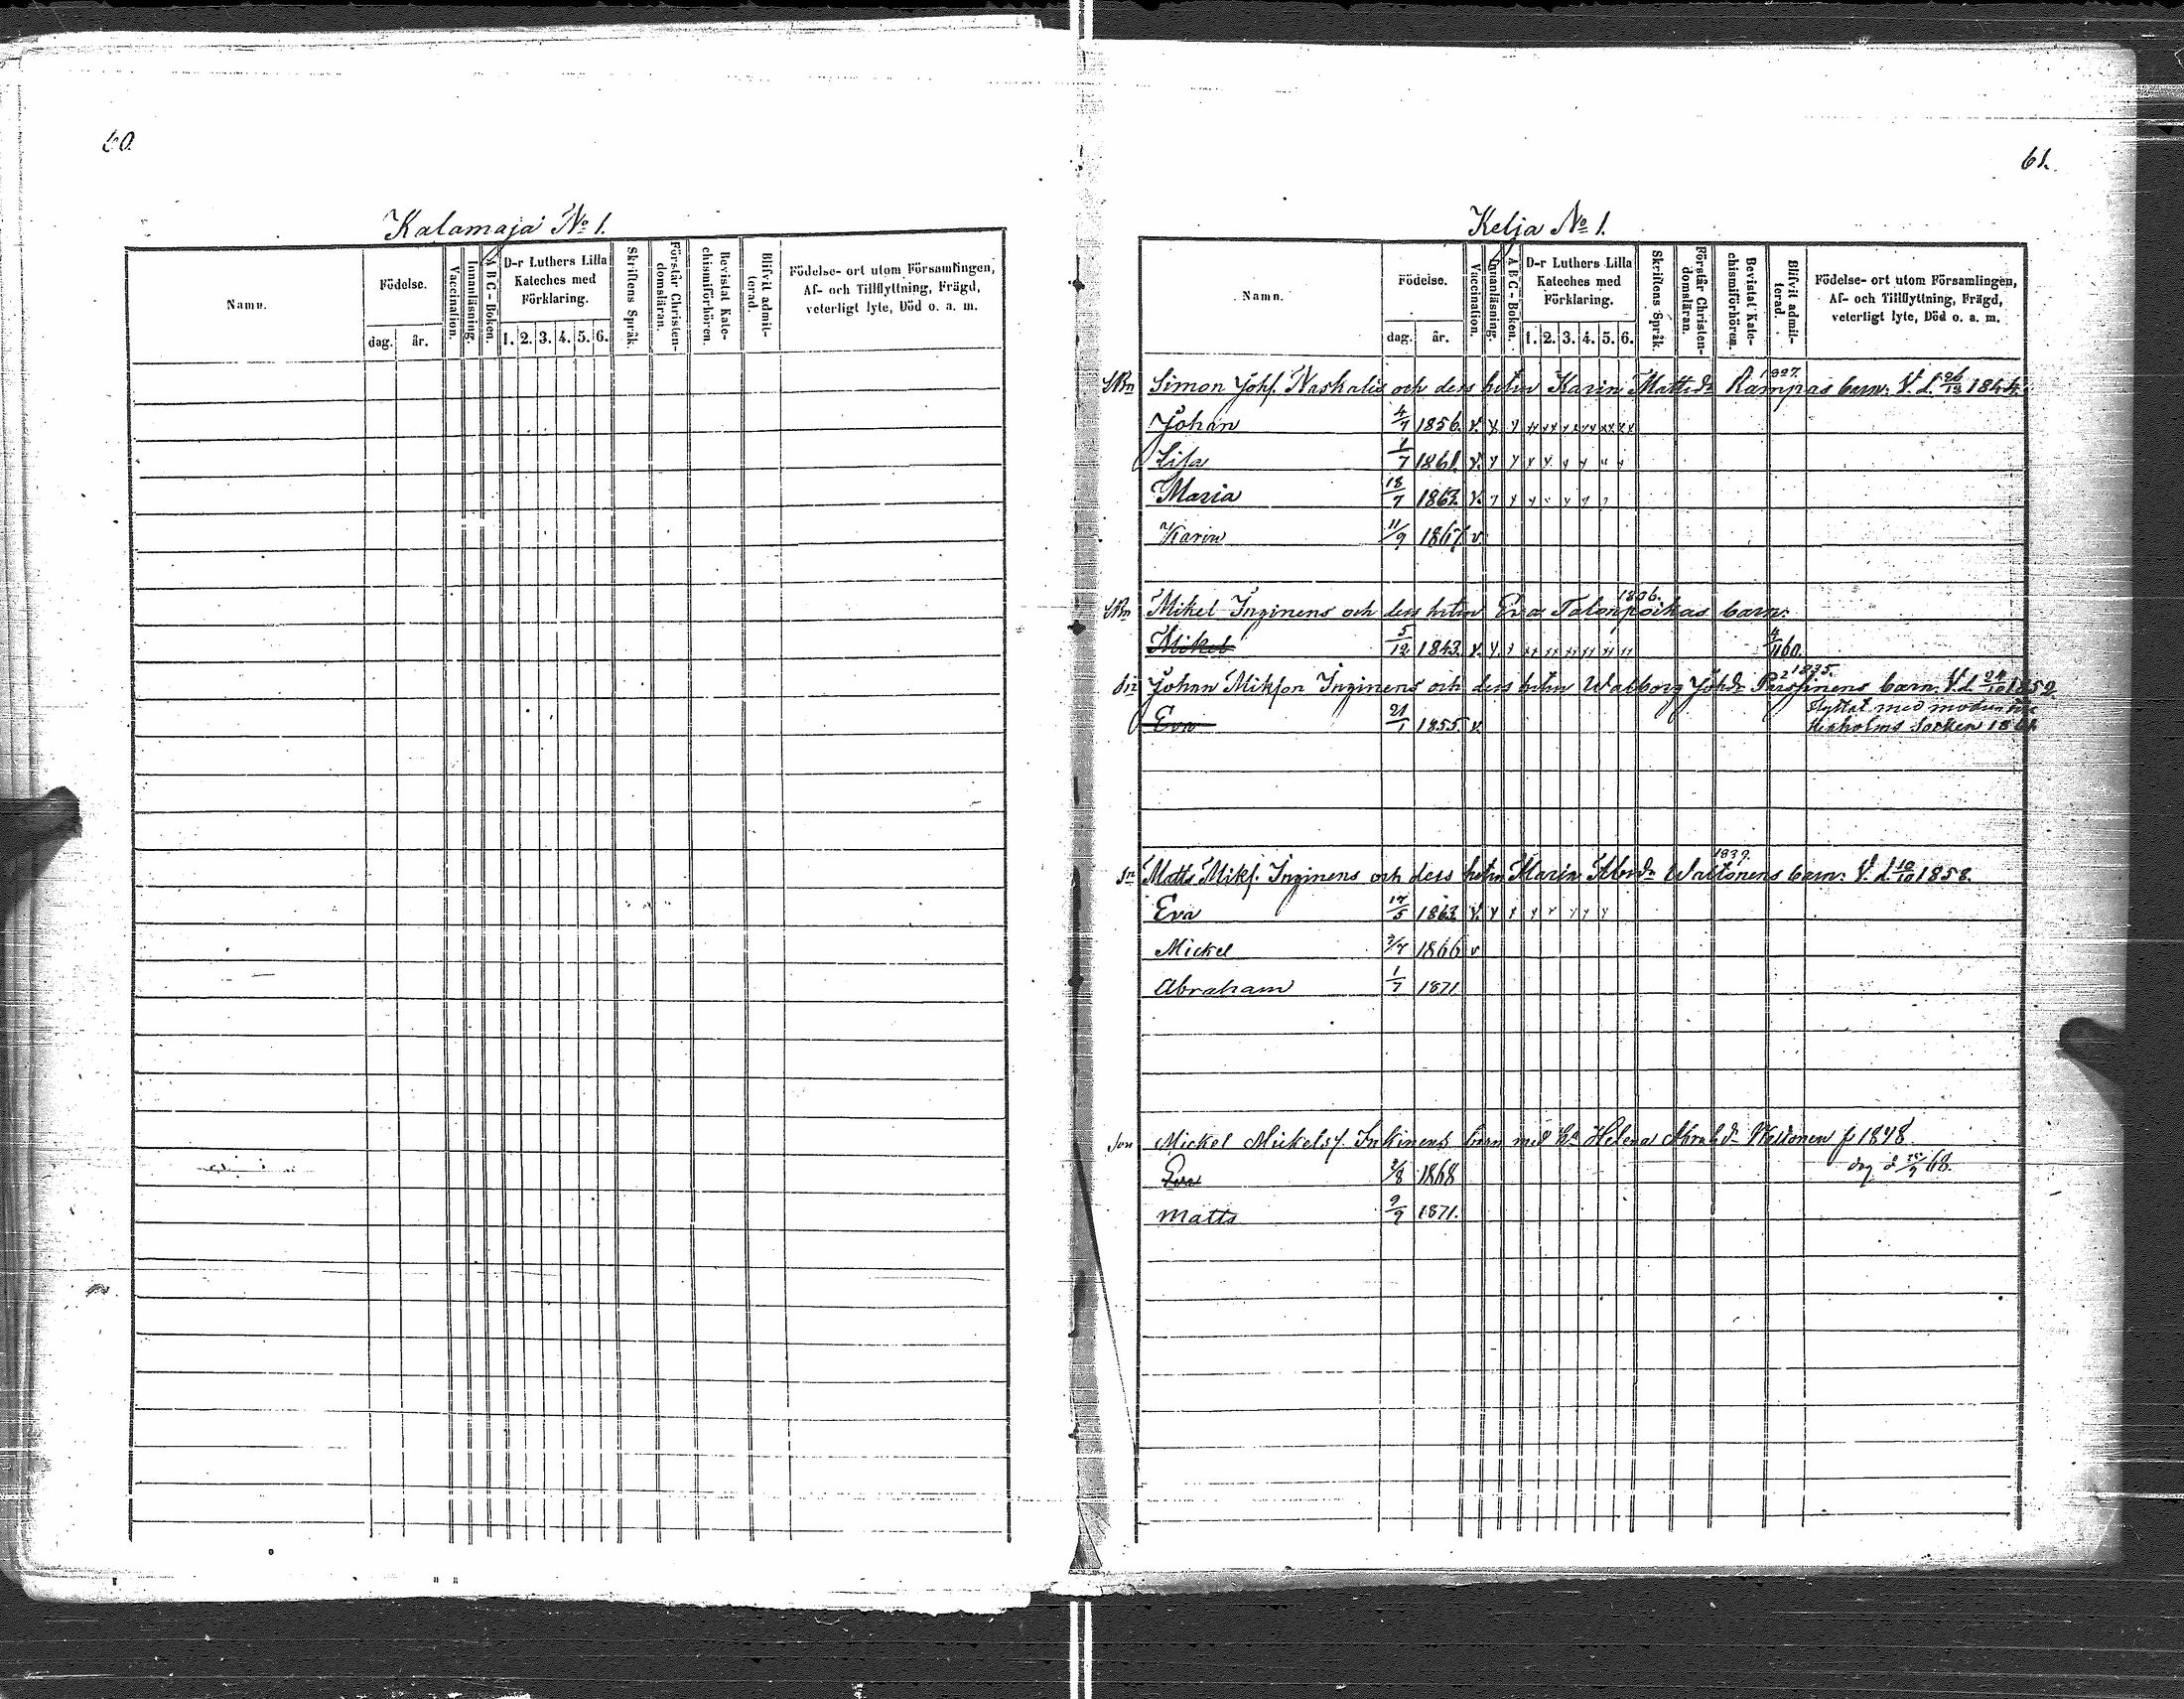 60.
Kalamaja No 1.
Namn.
Födelse.
dag. år.
Vaccination.
Innanläsning.
A B C - Boken.
D-r Luthers Lilla Kateches med Förklaring.
1. 2. 3. 4. 5. 6.
Skriftens Språk.
Förstår Christendomsläran.
Bevistat Katechismiförhören.
Blifvit admitterad.
Födelse- ort utom Församlingen,
Af- och Tillflyttning, Frägd,
veterligt lyte, Död o. a. m.
61.
Kelja No 1.
Namn.
Födelse.
dag. år.
Vaccination.
Innanläsning.
A B C - Boken.
D-r Luthers Lilla Kateches med Förklaring.
1. 2. 3. 4. 5. 6.
Skriftens Språk.
Förstår Christendomsläran.
Bevistat Katechismiförhören.
Blifvit admitterad.
Födelse- ort utom Församlingen,
Af- och Tillflyttning, Frägd,
veterligt lyte, Död o. a. m.
1827.
Simon Johs. Naskalis och dess hstru Karin Mattsdr Rampas barn. V. d. 26/12 1844.
Johan 4/7 1856. v.
Lisa 1/7 1861. v.
Maria 18/7 1863. v.
Karin 11/9 1867 v.
1806.
Mikel Inginens och dess hstru Eva Talonpoikas barn.
Mikel 5/12 1843. v. 4/11 60.
1835.
Johan Mikson Inginens och dess hstru Walborg Johdr Pussinens barn. V. d. 24/10 1852
Eva 21/1 1855. v. Flyttat med modern till
Hexholms Socken 1861
1839.
Matts Miks. Inginens och dess hstru Karin Abrdr Waltonens barn. V. d. 10/10 1858.
Eva 17/5 1863. v.
Mickel 3/7 1866 v
Abraham 1/7 1871
Son Mickel Mickelss. Inkinens barn med h. Helena Abrahdr Weltonen f 1848
Eva 3/8 1868 /9 68.
Matts 9/9 1871.